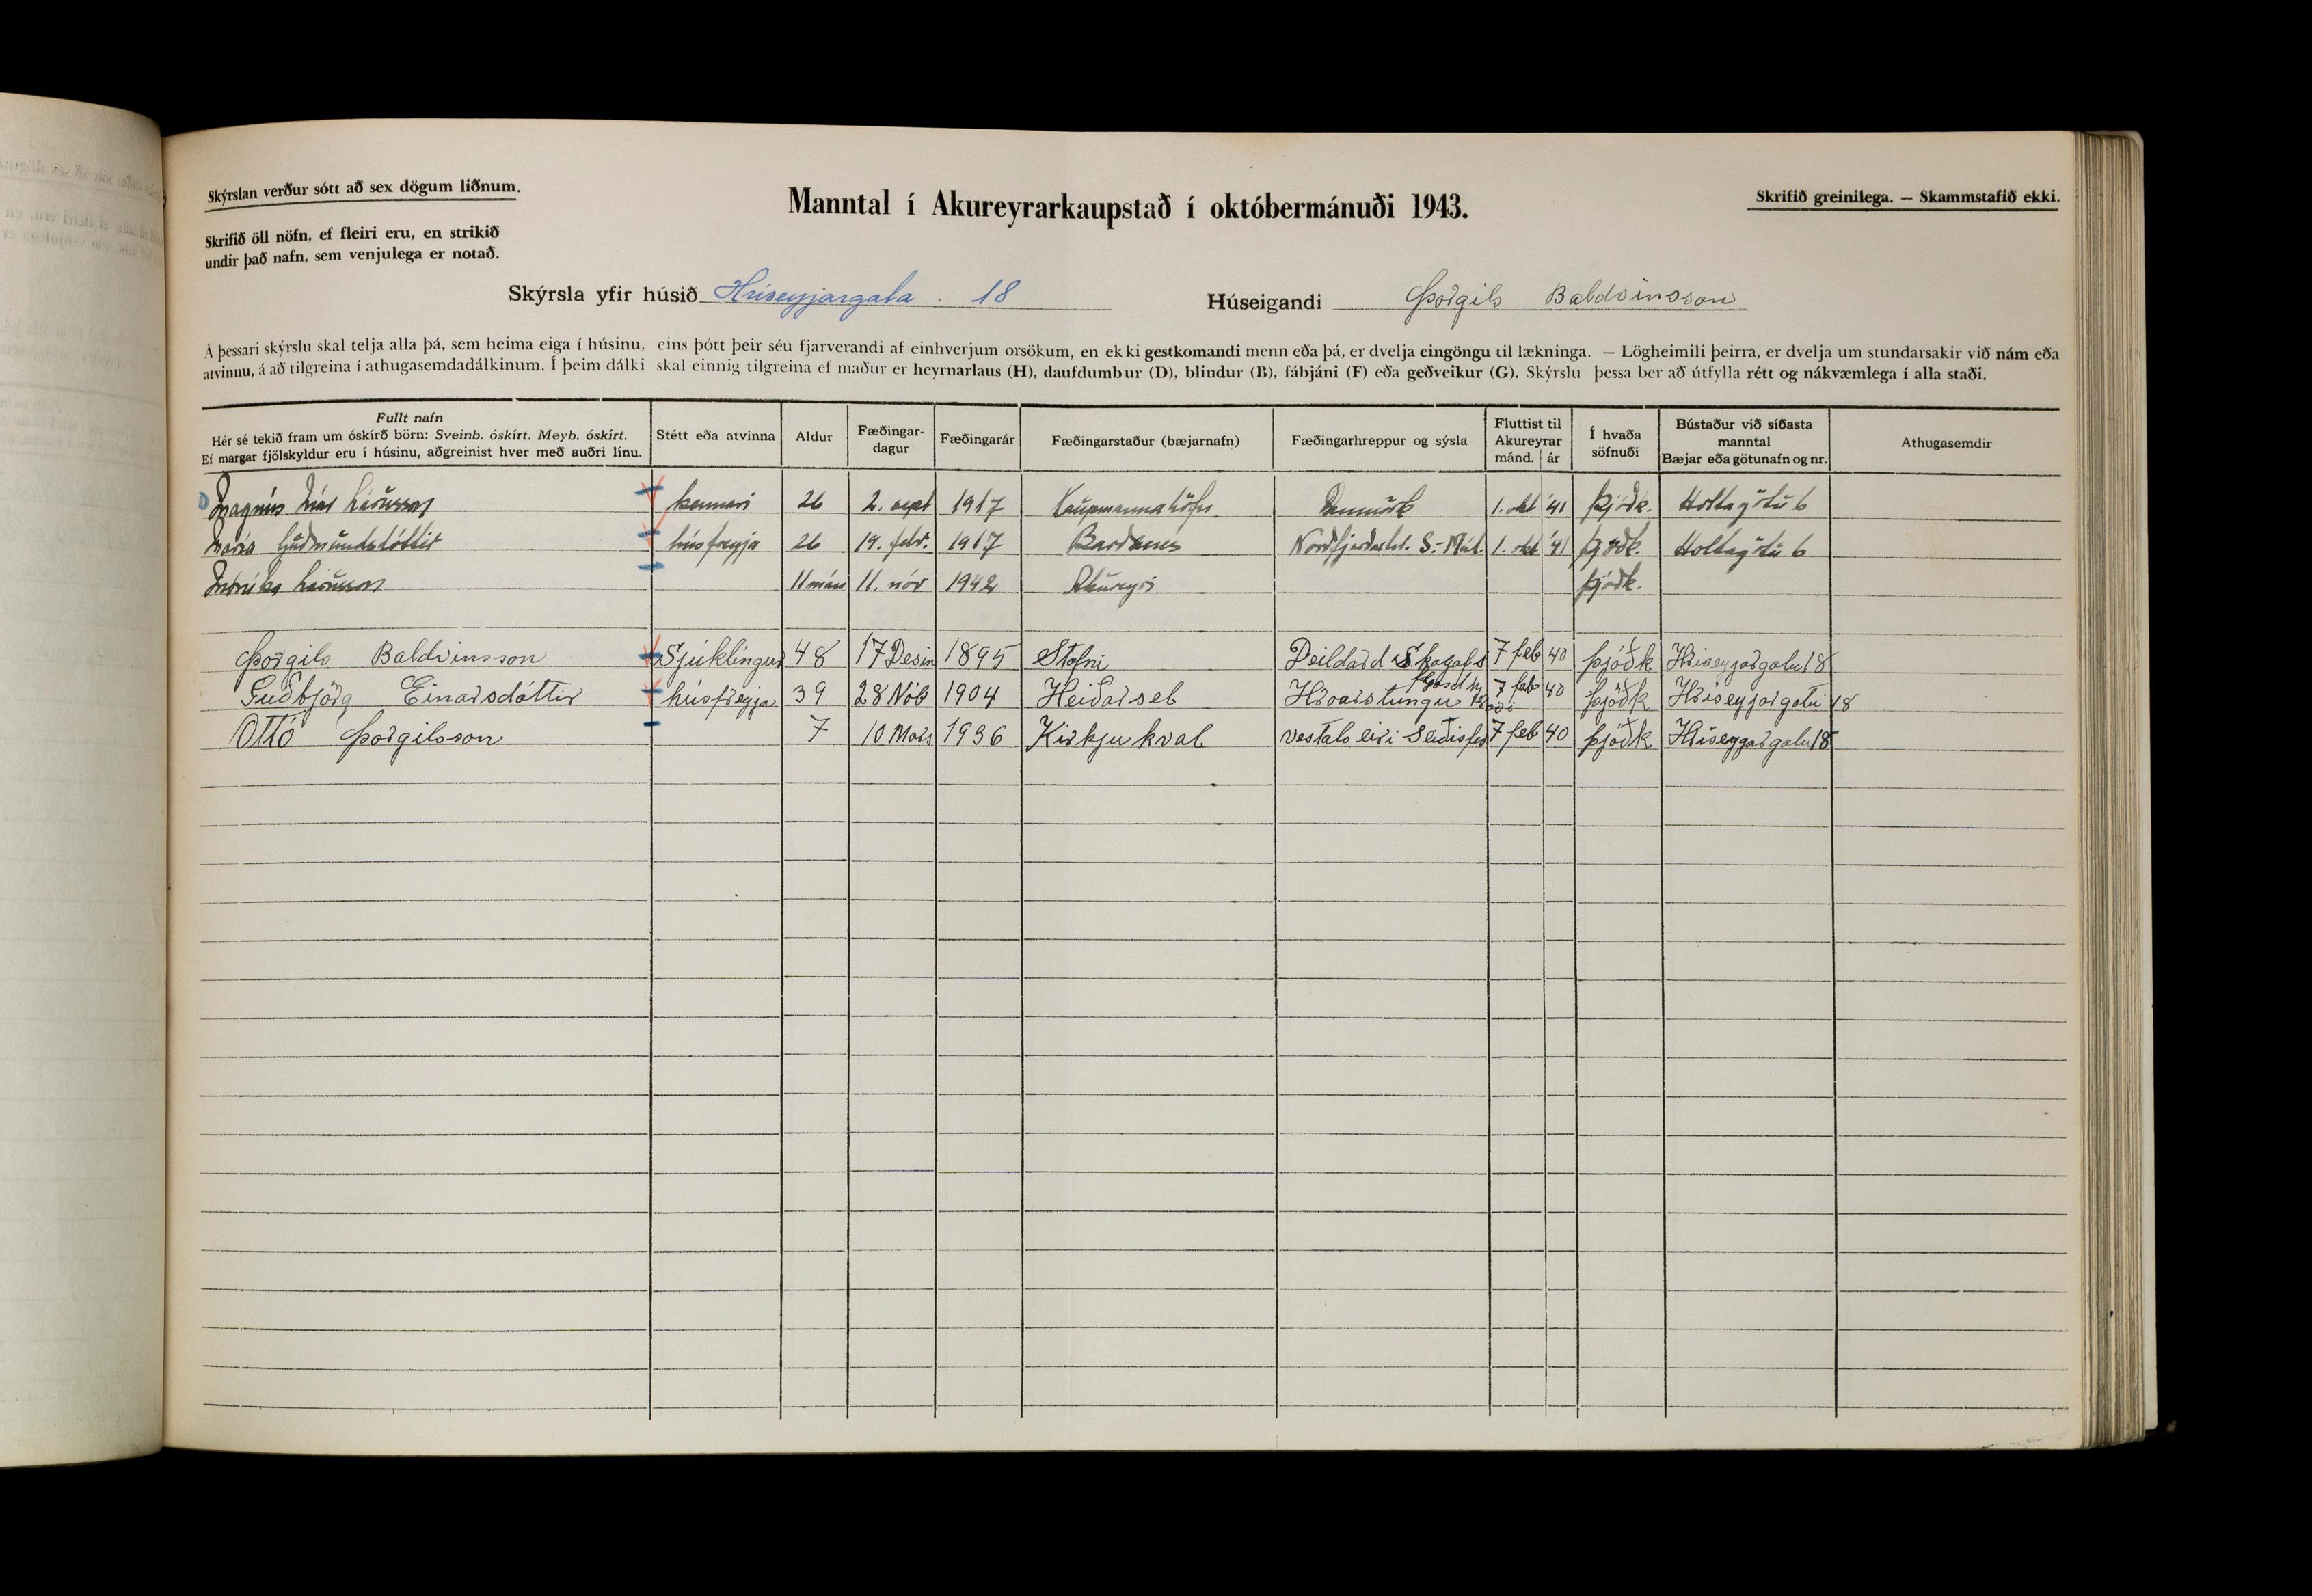 Skýrslan verður sótt að sex dögum liðnum.
Manntal í Akureyrarkaupstað í októbermánuði 1943.
Skrifið greinilega. — Skammstafið ekki.
Skrifið öll nöfn, ef fleiri eru, en strikið
undir það nafn, sem venjulega er notað.
Skýrsla yfir húsið Hríseyjargata 18 Húseigandi Þorgils Baldvinsson
Á þessari skýrslu skal telja alla þá, sem heima eiga í húsinu, eins þótt þeir séu fjarverandi af einhverjum orsökum, en ekki gestkomandi menn eða þá, er dvelja eingöngu til lækninga. — Lögheimili þeirra, er dvelja um stundarsakir við nám eða
atvinnu, á að tilgreina í athugasemdadálkinum. Í þeim dálki skal einnig tilgreina ef maður er heyrnarlaus (H), daufdumbur (D), blindur (B), fábjáni (F) eða geðveikur (G). Skýrslu þessa ber að útfylla rétt og nákvæmlega í alla staði.
Fullt nafn
Hér sé tekið fram um óskírð börn: Sveinb. óskírt. Meyb. óskírt.
Ef margar fjölskyldur eru í húsinu, aðgreinist hver með auðri línu.
Stétt eða atvinna
Aldur
Fæðingar-
dagur
Fæðingarár
Fæðingarstaður (bæjarnafn)
Fæðingarhreppur og sýsla
Fluttist til
Akureyrar
mánd. ár
Í hvaða
söfnuði
Bústaður við síðasta
manntal
Bæjar eða götunafn og nr.
Athugasemdir
Magnús Már Lárusson kennari 26 2. sept 1917 Kaupmannahöfn Danmörk 1. okt '41 þjóðk. Holtagötu 6
María Guðmundsdóttir húsfreyja 26 19. febr. 1917 Barðsnes Norðfjarðarhr. S.-Múl. 1. okt '41 þjóðk. Holtagötu 6
Lárusson 11 mán 11. nóv 1942 Akureyri þjóðk.
Þorgils Baldvinsson Sjúklingur 48 17 Desin 1895 Stafni Deildard Skagafs 7 feb 40 þjóðk Hríseyjargötu 18
Guðbjörg Einarsdóttir húsfreyja 39 28 Nób 1904 Heiðarsel Hróarstungu 7 feb 40 þjóðk Hríseyjargötu 18
Ottó Þorgilsson 7 10 Mars 1936 Kirkjuhval vestdalseiri Seiðisfir 7 feb 40 þjóðk Hríseyjargötu 18